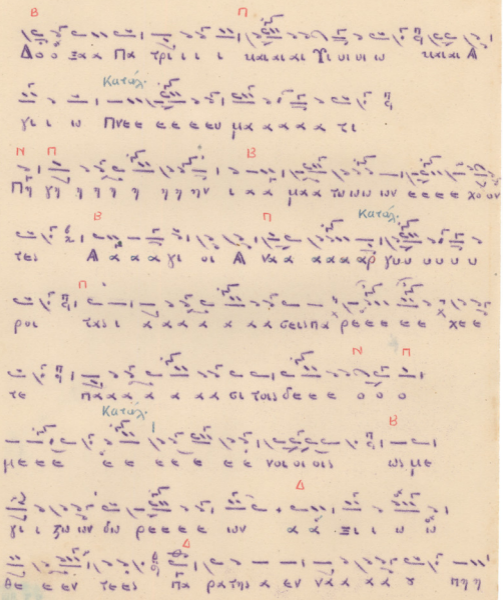 Β Π
Δο ο ξα α Πα τρι ι ι ι και αι αι Υι υι υι ω και αι Α
Κατάλ.
γι ι ω Πνε ε ε ε ε ευ μα α α α α τι
Ν Π Β
Πη γη η η η η η η ην ι α α μα α τω ω ω ων ε ε ε ε χο ον
Β Π Κατάλ.
τες Α α α α γι οι Α να α α α α αρ γυ υ υ υ υ υ
Π
ροι τας ι α α α α α α α σεις πα ρε ε ε ε ε χε ε
Ν Π
τε πα α α α α α α σι τοις δε ε ε ο ο ο
Κατάλ. Β
με ε ε ε ε ε ε ε ε νοι οι οις ως με
Δ
γι ι ζω ων δω ρε ε ε ε ων α α ξι ι ω ω
Δ
θε ε εν τε ες Πα ρα της α εν να α α α ου πη η